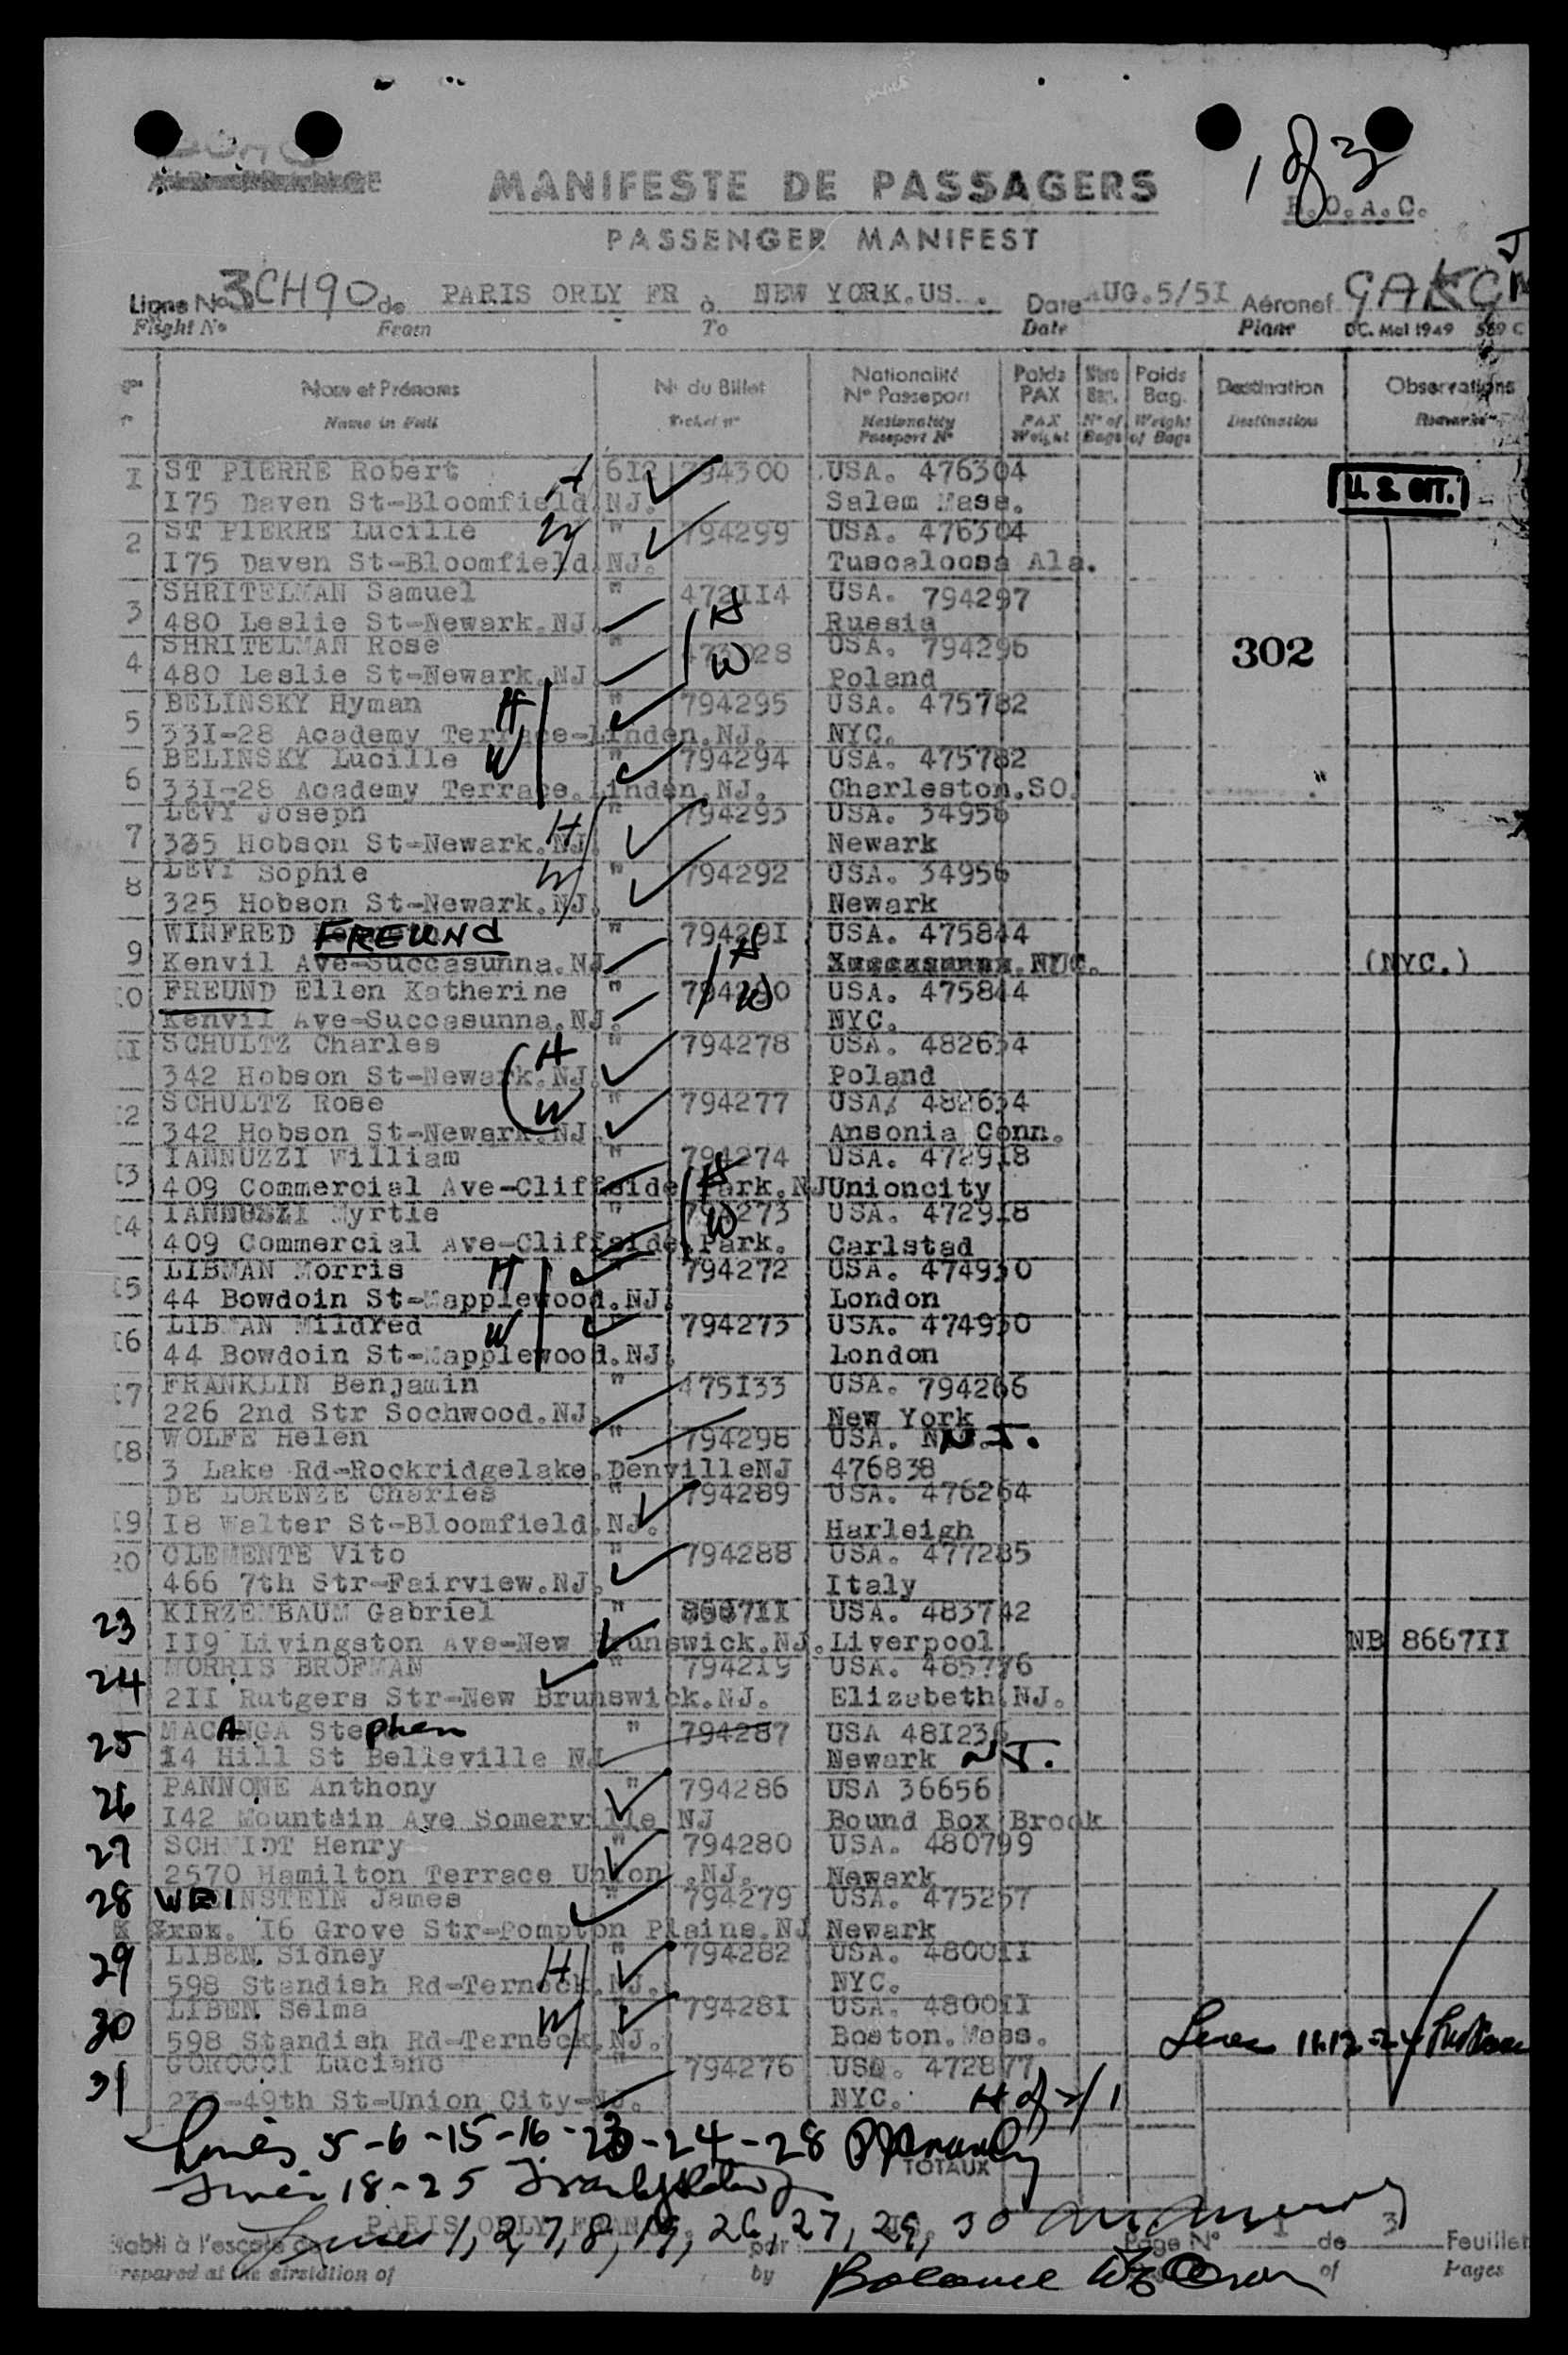 1 of 3
MANIFESTE DE PASSAGERS
B.O.A.C.
PASSENGER MANIFEST
Ligne No 3CH90 de PARIS ORLY FR à NEW YORK.US. Date AUG.5/5I Aéronef GAKGM
Flight No From To Date Plane DC. Mai 1949 589 C
Nom et Prénoms N° du Billet Nationalité N° Passeport Poids PAX Nbre Bag. Poids Bag. Destination Observations
Name in Full Ticket n° Nationality Passport N° PAX Weight N° of Bags Weight of Bags Destination Remarks
I ST PIERRE Robert H 612 794300 USA. 476304
I75 Daven St-Bloomfield NJ. Salem Mass. U.S. CIT.
2 ST PIERRE Lucille W " 794299 USA. 476304
I75 Daven St-Bloomfield NJ. Tuscaloosa Ala.
3 SHRITELMAN Samuel " 472II4 USA. 794297
480 Leslie St-Newark.NJ. H Russia
4 SHRITELMAN Rose " USA. 794296 302
480 Leslie St-Newark.NJ. W Poland
5 BELINSKY Hyman H " 794295 USA. 475782
33I-28 Academy Terrace-Linden.NJ. NYC.
6 BELINSKY Lucille W " 794294 USA. 475782
33I-28 Academy Terrace.Linden.NJ. Charleston.SO.
7 LEVY Joseph " 794293 USA. 34956
325 Hobson St-Newark.NJ. H Newark
8 LEVI Sophie W " 794292 USA. 34956
325 Hobson St-Newark.NJ. Newark
9 WINFRED FREUND " 79429I USA. 475844
Kenvil Ave-Succasunna.NJ H NYC. (NYC.)
I0 FREUND Ellen Katherine " 794290 W USA. 475844
Kenvil Ave-Succasunna.NJ. NYC.
II SCHULTZ Charles H " 794278 USA. 482634
342 Hobson St-Newark.NJ. Poland
I2 SCHULTZ Rose W " 794277 USA/ 482634
342 Hobson St-Newark.NJ. Ansonia Conn.
I3 IANNUZZI William " 794274 USA. 472918
409 Commercial Ave-Cliffside Park.NJ H Unioncity
I4 IANNUZZI Myrtle " 794273 W USA. 472918
409 Commercial Ave-Cliffside.Park. Carlstad
I5 LIBMAN Morris H " 794272 USA. 474930
44 Bowdoin St-Mapplewood.NJ. London
I6 LIBMAN Mildred W " 794273 USA. 474930
44 Bowdoin St-Mapplewood.NJ. London
I7 FRANKLIN Benjamin " 475I33 USA. 794266
226 2nd Str Sochwood.NJ. New York
I8 WOLFE Helen " 794298 USA. N.J.
3 Lake Rd-Rockridgelake.DenvilleNJ 476838
DE LORENZE Charles " 794289 USA. 476264
I9 I8 Walter St-Bloomfield.NJ. Harleigh
20 CLEMENTE Vito " 794288 USA. 477285
466 7th Str-Fairview.NJ. Italy
23 KIRZEMBAUM Gabriel " 8667II USA. 483742
II9 Livingston Ave-New Brunswick.NJ. Liverpool. NB 8667II
24 MORRIS BROFMAN " 794219 USA. 485776
2II Rutgers Str-New Brunswick.NJ. Elizabeth.NJ.
25 MACANGA Stephen " 794287 USA 48I236
I4 Hill St Belleville NJ Newark N.J.
26 PANNONE Anthony " 794286 USA 36656
I42 Mountain Ave Somerville NJ Bound Box Brook
27 SCHMIDT Henry " 794280 USA. 480799
2570 Hamilton Terrace Union .NJ. Newark
28 WEINSTEIN James " 794279 USA. 475257
I6 Grove Str-Pompton Plains.NJ Newark
29 LIBEN. Sidney H " 794282 USA. 4800II
598 Standish Rd-Terneck.NJ. NYC.
30 LIBEN. Selma W " 79428I USA. 4800II
598 Standish Rd-Terneck.NJ. Boston.Mass.
31 COROCCI Luciano " 794276 USA. 472877
-49th St-Union City-NJ. NYC. H of 2/1
Lines 5-6-15-16-23-24-28
TOTAUX
Lines 18-25
PARIS ORLY FRANCE
Lines 1,2,7,8,19,26,27,29,30
Etabli à l'escale de par Page N° I de 3 Feuillets
Prepared at the airstation of by of Pages
Balance